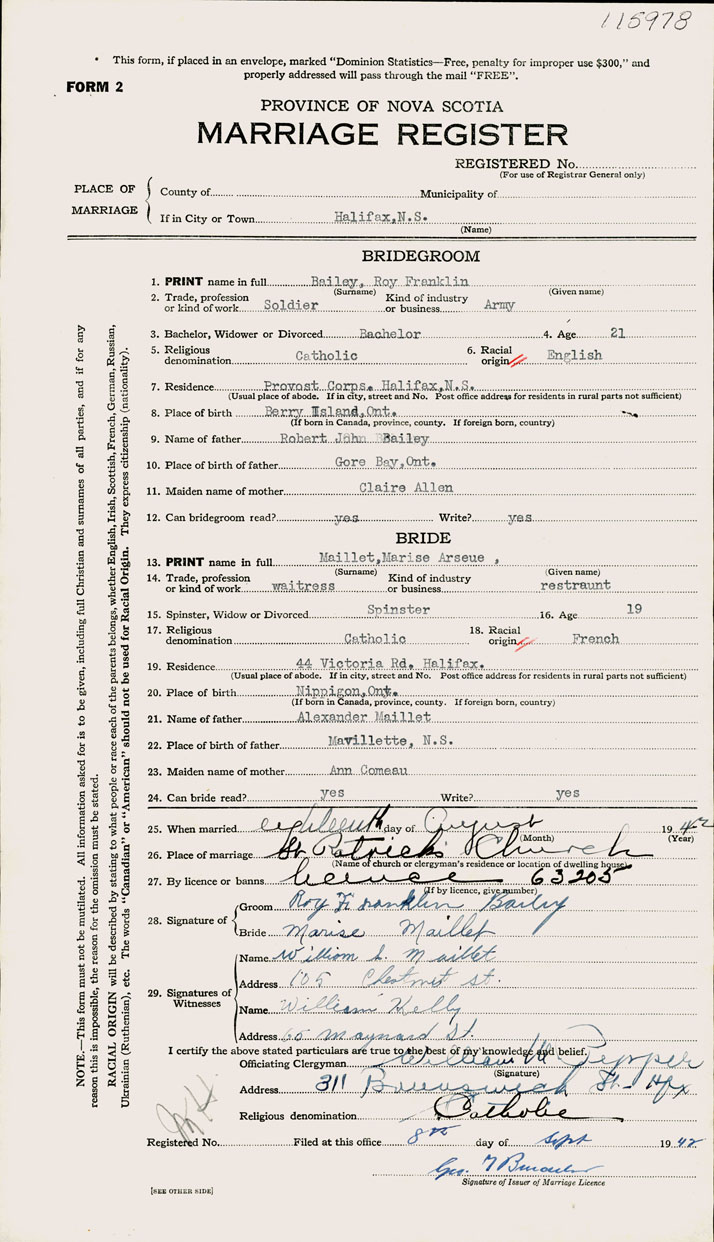 115978
• This form, if placed in an envelope, marked "Dominion Statistics—Free, penalty for improper use $300," and
properly addressed will pass through the mail "FREE".
FORM 2
PROVINCE OF NOVA SCOTIA
MARRIAGE REGISTER
REGISTERED No.
(For use of Registrar General only)
PLACE OF MARRIAGE
County of Municipality of
If in City or Town Halifax,N.S.
(Name)
BRIDEGROOM
1. PRINT name in full Bailey, Roy Franklin
(Surname) (Given name)
2. Trade, profession or kind of work Soldier Kind of industry or business Army
3. Bachelor, Widower or Divorced Bachelor 4. Age 21
5. Religious denomination Catholic 6. Racial origin English
7. Residence Provost Corps. Halifax,N.S.
(Usual place of abode. If in city, street and No. Post office address for residents in rural parts not sufficient)
8. Place of birth Berry Island,Ont.
(If born in Canada, province, county. If foreign born, country)
9. Name of father Robert John Bailey
10. Place of birth of father Gore Bay,Ont.
11. Maiden name of mother Claire Allen
12. Can bridegroom read? yes Write? yes
BRIDE
13. PRINT name in full Maillet,Marise Arseue ,
(Surname) (Given name)
14. Trade, profession or kind of work waitress Kind of industry or business restraunt
15. Spinster, Widow or Divorced Spinster 16. Age 19
17. Religious denomination Catholic 18. Racial origin French
19. Residence 44 Victoria Rd. Halifax.
(Usual place of abode. If in city, street and No. Post office address for residents in rural parts not sufficient)
20. Place of birth Nippigon,Ont.
(If born in Canada, province, county. If foreign born, country)
21. Name of father Alexander Maillet
22. Place of birth of father Mavillette, N.S.
23. Maiden name of mother Ann Comeau
24. Can bride read? yes Write? yes
25. When married eighteenth day of August 1942
(Month) (Year)
26. Place of marriage St. Patrick's Church
(Name of church or clergyman's residence or location of dwelling house)
27. By licence or banns licence 63205
(If by licence, give number)
28. Signature of
Groom Roy Franklin Bailey
Bride Marise Maillet
29. Signatures of Witnesses
Name William L. Maillet
Address 105 Chestnut St.
Name William Kelly
Address 65 Maynard St.
I certify the above stated particulars are true to the best of my knowledge and belief.
Officiating Clergyman William M Pepper
(Signature)
Address 311 Brunswick St. Hfx
Religious denomination Catholic
Registered No. Filed at this office 8th day of Sept 1942
Geo.
Signature of Issuer of Marriage Licence
[SEE OTHER SIDE]
NOTE.—This form must not be mutilated. All information asked for is to be given, including full Christian and surnames of all parties, and if for any
reason this is impossible, the reason for the omission must be stated.
RACIAL ORIGIN will be described by stating to what people or race each of the parents belongs, whether English, Irish, Scottish, French, German, Russian,
Ukrainian (Ruthenian), etc. The words "Canadian" or "American" should not be used for Racial Origin. They express citizenship (nationality).